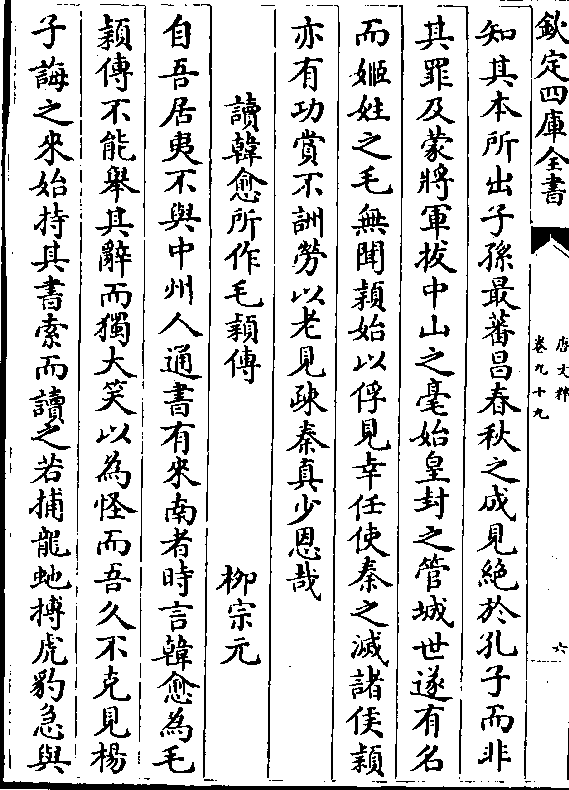 欽定四庫全書
唐文粹
卷九十九
六
知其本所出子孫最蕃昌春秋之成見絕於孔子而非
其罪及蒙將軍拔中山之毫始皇封之管城世遂有名
而姬姓之毛無聞穎始以俘見幸任使秦之滅諸侯穎
亦有功賞不訓勞以老見疎秦真少恩哉
讀韓愈所作毛穎傳
柳宗元
自吾居夷不與中州人通書有來南者時言韓愈為毛
穎傳不能舉其辭而獨大笑以為怪而吾久不克見楊
子誨之來始持其書索而讀之若捕龍虵搏虎豹急與